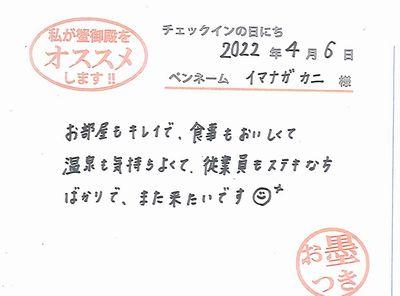 私が蟹御殿を
オススメ
します!!
チェックインの日にち
2022 年 4 月 6 日
ペンネーム イマナガ カニ 様
お部屋もキレイで、食事もおいしくて
温泉も気持ちよくて、従業員もステキなち
ばかりで、また来たいです☺
お墨
つき